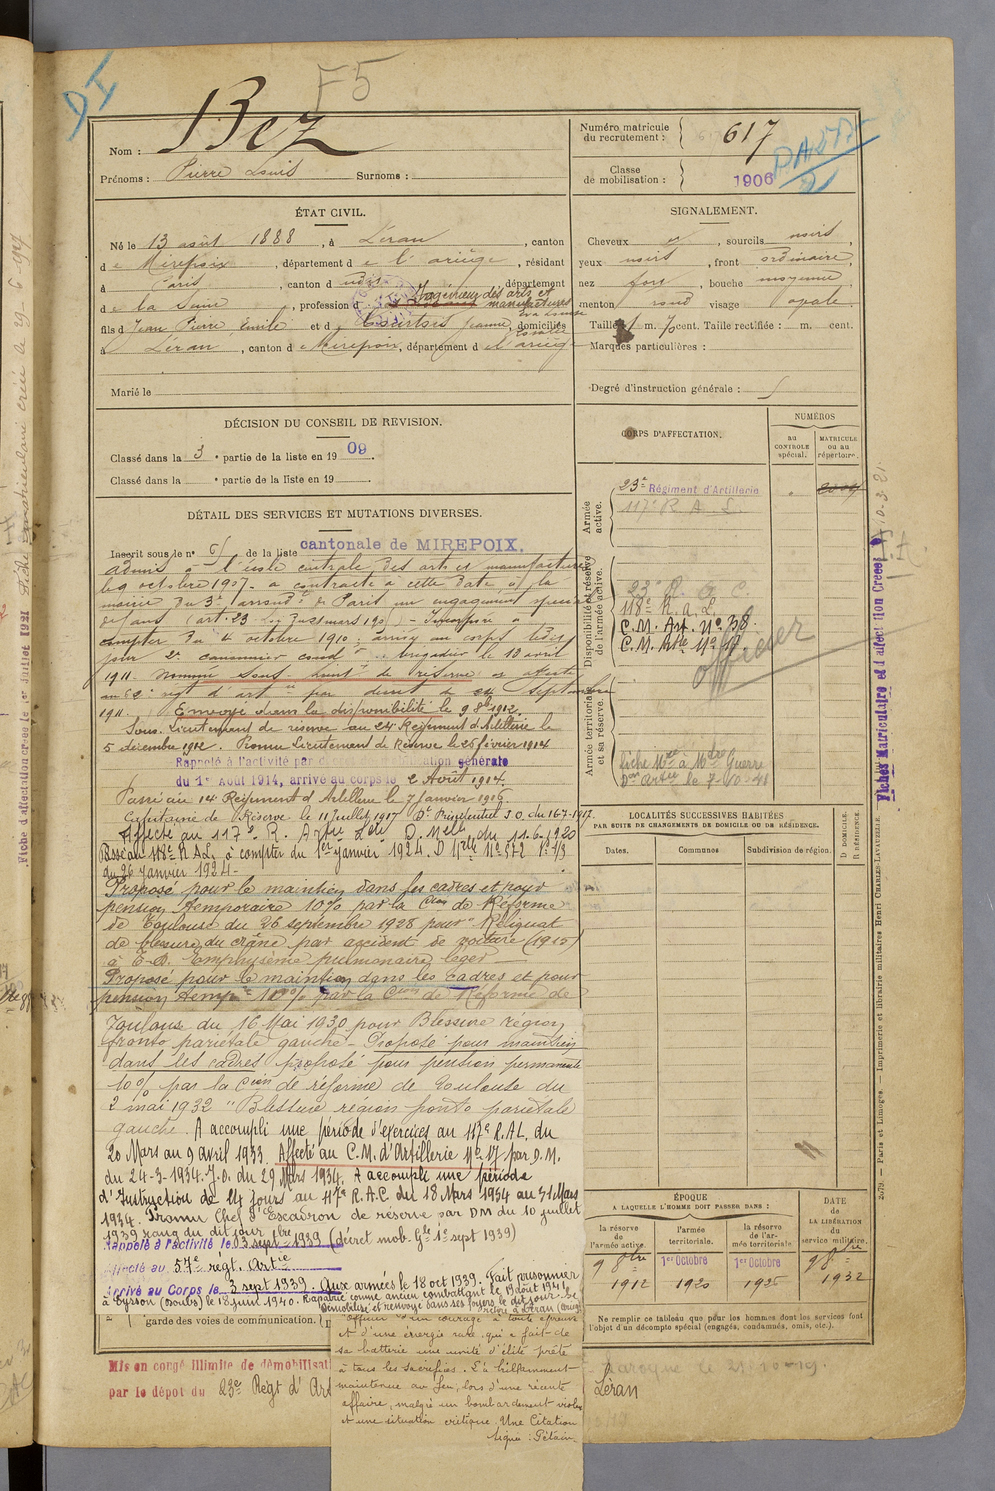 DI
F5
Nom : Bez
Prénoms : Pierre Louis Surnoms :
Numéro matricule du recrutement : 617
Classe de mobilisation : 1906
ÉTAT CIVIL.
Né le 13 août 1888, à Léran, canton
de Mirepoix, département de l'ariège, résidant
à Paris, canton d udit, département
de la Seine, profession d Ingénieur des arts et manufactures
fils de Jean Pierre Emile et de Jeanne, domiciliés
à Léran, canton de Mirepoix, département de l'ariège
Marié le
SIGNALEMENT.
Cheveux , sourcils noirs,
yeux noirs, front ordinaire,
nez fort, bouche moyenne,
menton rond visage ovale.
Taille 1 m. 70 cent. Taille rectifiée : m. cent.
Marques particulières :
Degré d'instruction générale : 5
DÉCISION DU CONSEIL DE REVISION.
Classé dans la 3e partie de la liste en 1909.
Classé dans la e partie de la liste en 19 .
DÉTAIL DES SERVICES ET MUTATIONS DIVERSES.
Inscrit sous le n° de la liste cantonale de MIREPOIX.
admis à l'école centrale des arts et manufactures
le 9 octobre 1907 - a contracté à cette date à la
mairie du 3e arrondt de Paris un engagement spécial
de ans (art. 23 loi du 21 mars 1905) - Incorporé à
compter du 4 octobre 1910 ; arrivé au corps ledit
jour 2e canonnier condr - brigadier le 10 avril
1911. nommé sous-lieutt de réserve et affecté
au régt d'artie par décret de septembre
1911. Envoyé dans la disponibilité le 9 8bre 1912.
Sous-Lieutenant de réserve au 24 Régiment d'Artillerie le
5 décembre 1912. Promu Lieutenant de Réserve le 25 février 1914
Rappelé à l'activité par mobilisation générale
du 1er Août 1914, arrivé au corps le 2 Août 1914.
Passé au 14 Régiment d'Artillerie le 7 Janvier 1916.
Capitaine de Réserve le 11 Juillet 1917 Dt Présidentiel J.O. du 16-7-1917.
Affecté au 117e R. Artie Lde D. Melle du 11-6-1920
Passé au 118e R.A.L. à compter du 1er janvier 1924. D. Melle No 872 P. 1/3
du 26 janvier 1924 -
Proposé pour le maintien dans les cadres et pour
pension temporaire 10% par la Cion de Réforme
de Toulouse du 26 septembre 1928 pour "Reliquat
de blessure du crâne par accident de voiture (1915)
à T.D. Emphysème pulmonaire léger -
Proposé pour le maintien dans les cadres et pour
pension tempre 10% par la Cion de Réforme de
Toulouse du 16 Mai 1930 pour Blessure région
fronto pariétale gauche - Proposé pour maintien
dans les cadres proposé pour pension permanente
10% par la Cion de réforme de Toulouse du
2 mai 1932 "Blessure région fronto pariétale
gauche. A accompli une période d'exercices au 117e R.A.L. du
20 Mars au 9 avril 1933. Affecté au C.M. d'Artillerie No 17 par D.M.
du 24-3-1934. J.O. du 29 Mars 1934. A accompli une période
d'Instruction de 14 jours au 117e R.A.C. du 18 Mars 1934 au 31 Mars
1934. Promu Chef d'Escadron de réserve par DM du 10 juillet
1939 rang du dit jour
Rappelé à l'activité le 03 septbre 1939 (décret mob. Gle 1er sept 1939)
Affecté au 57e régt. Artie
Arrivé au Corps le 3 sept 1939. Aux armées le 18 oct 1939. Fait prisonnier
à (Doubs) le 18 juin 1940. Rapatrié comme ancien combattant le 19 août 1941.
Démobilisé et renvoyé dans ses foyers le dit jour. Se retire à Léran (Ariège)
garde des voies de communication.
Officier d'un courage à toute épreuve
et d'une énergie rare, qui a fait de
sa batterie une unité d'élite prête
à tous les sacrifices. L'a brillamment
maintenue au feu, lors d'une récente
affaire, malgré un bombardement violent
et une situation critique. Une Citation
signé : Pétain.
Mis en congé illimité de démobilisati
par le dépôt du 23e Régt d'Art
Laroque le 21-10-19.
Léran
CORPS D'AFFECTATION.
NUMÉROS
au CONTROLE spécial.
MATRICULE ou au répertoire.
Armée active.
23e Régiment d'Artillerie
117e R A L
Disponibilité et réserve de l'armée active.
23e R. A. C.
118e R.A.L.
C.M. Art. No 38.
C.M. Artie No 17.
officier
Armée territoriale et sa réserve.
LOCALITÉS SUCCESSIVES HABITÉES
PAR SUITE DE CHANGEMENTS DE DOMICILE OU DE RÉSIDENCE.
Dates. Communes Subdivision de région.
D DOMICILE.
R RÉSIDENCE.
ÉPOQUE
A LAQUELLE L'HOMME DOIT PASSER DANS :
la réserve de l'armée active.
l'armée territoriale.
la réserve de l'armée territoriale.
DATE de la LIBÉRATION du service militaire.
9 8bre 1912
1er Octobre 1920
1er Octobre 1926
9 8bre 1932
Ne remplir ce tableau que pour les hommes dont les services font
l'objet d'un décompte spécial (engagés, condamnés, omis, etc.).
2679. — Paris et Limoges. — Imprimerie et librairie militaires Henri CHARLES-LAVAUZELLE.
Fiches Matriculaire et d'affectation Créées
Fiche d'affectation créée le 1er Juillet 1921